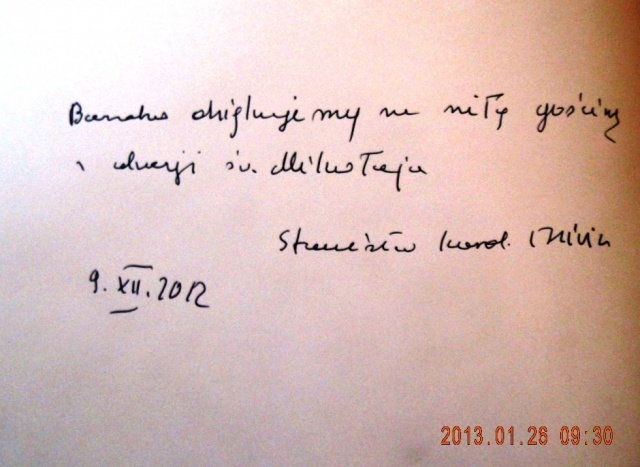 Bardzo dziękujemy za miłą gościnę
z okazji św. Mikołaja
Stanisław kard.
9. XII. 2012
2013.01.26 09:30